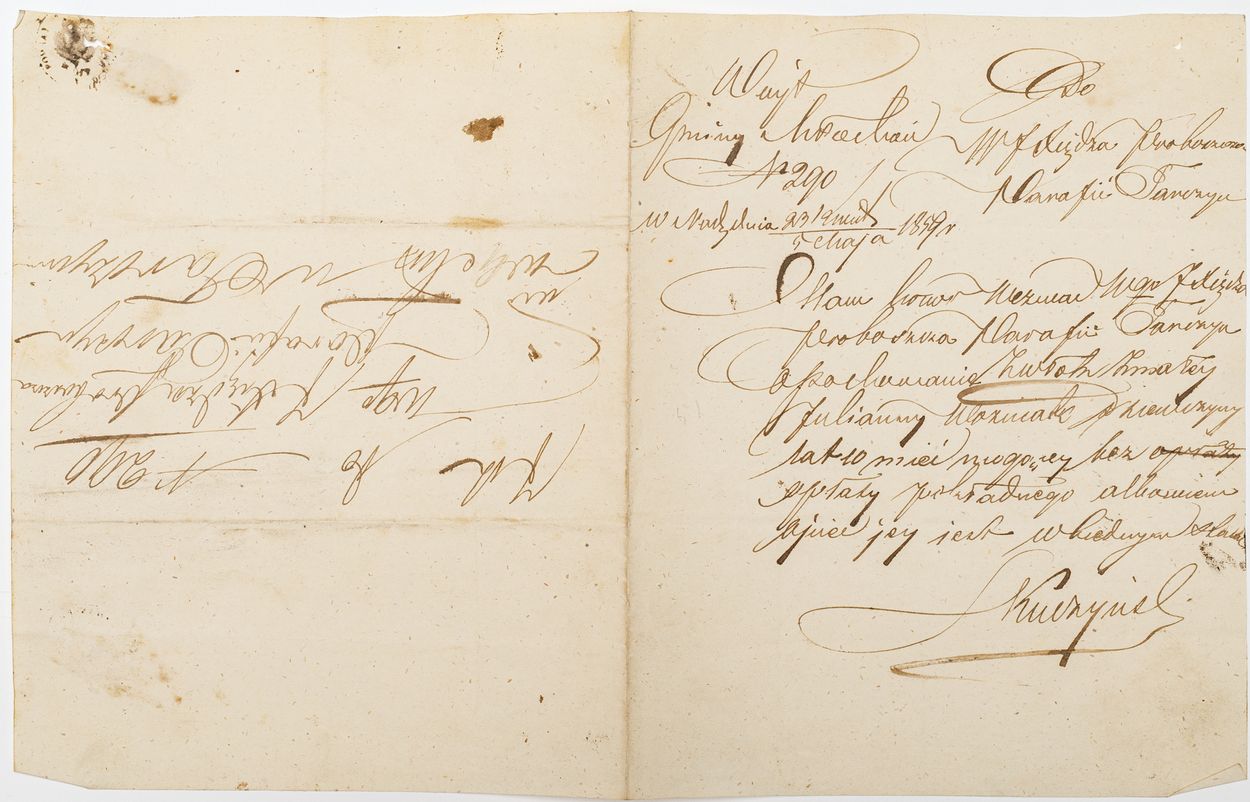 Wójt
Gminy Mrochów
N 290
w Nadz dnia 23 Kwiet / 5 Maja 1859 r
Do
JW Xiędza Proboszcza
Parafii Tarczyn
Mam honor wezwać Wgo JXiędza
Proboszcza Parafii Tarczyn
o pochowanie zwłok zmarłey
Julianny Woźniak dziewczyny
lat 10 mieć mogącey bez opłaty
opłaty pokładnego albowiem
ojciec jey jest w biednym stanie
Kuczyński
N 290
Do
Wgo JXiędza Proboszcza
Parafii Tarczyn
w Tarczyn